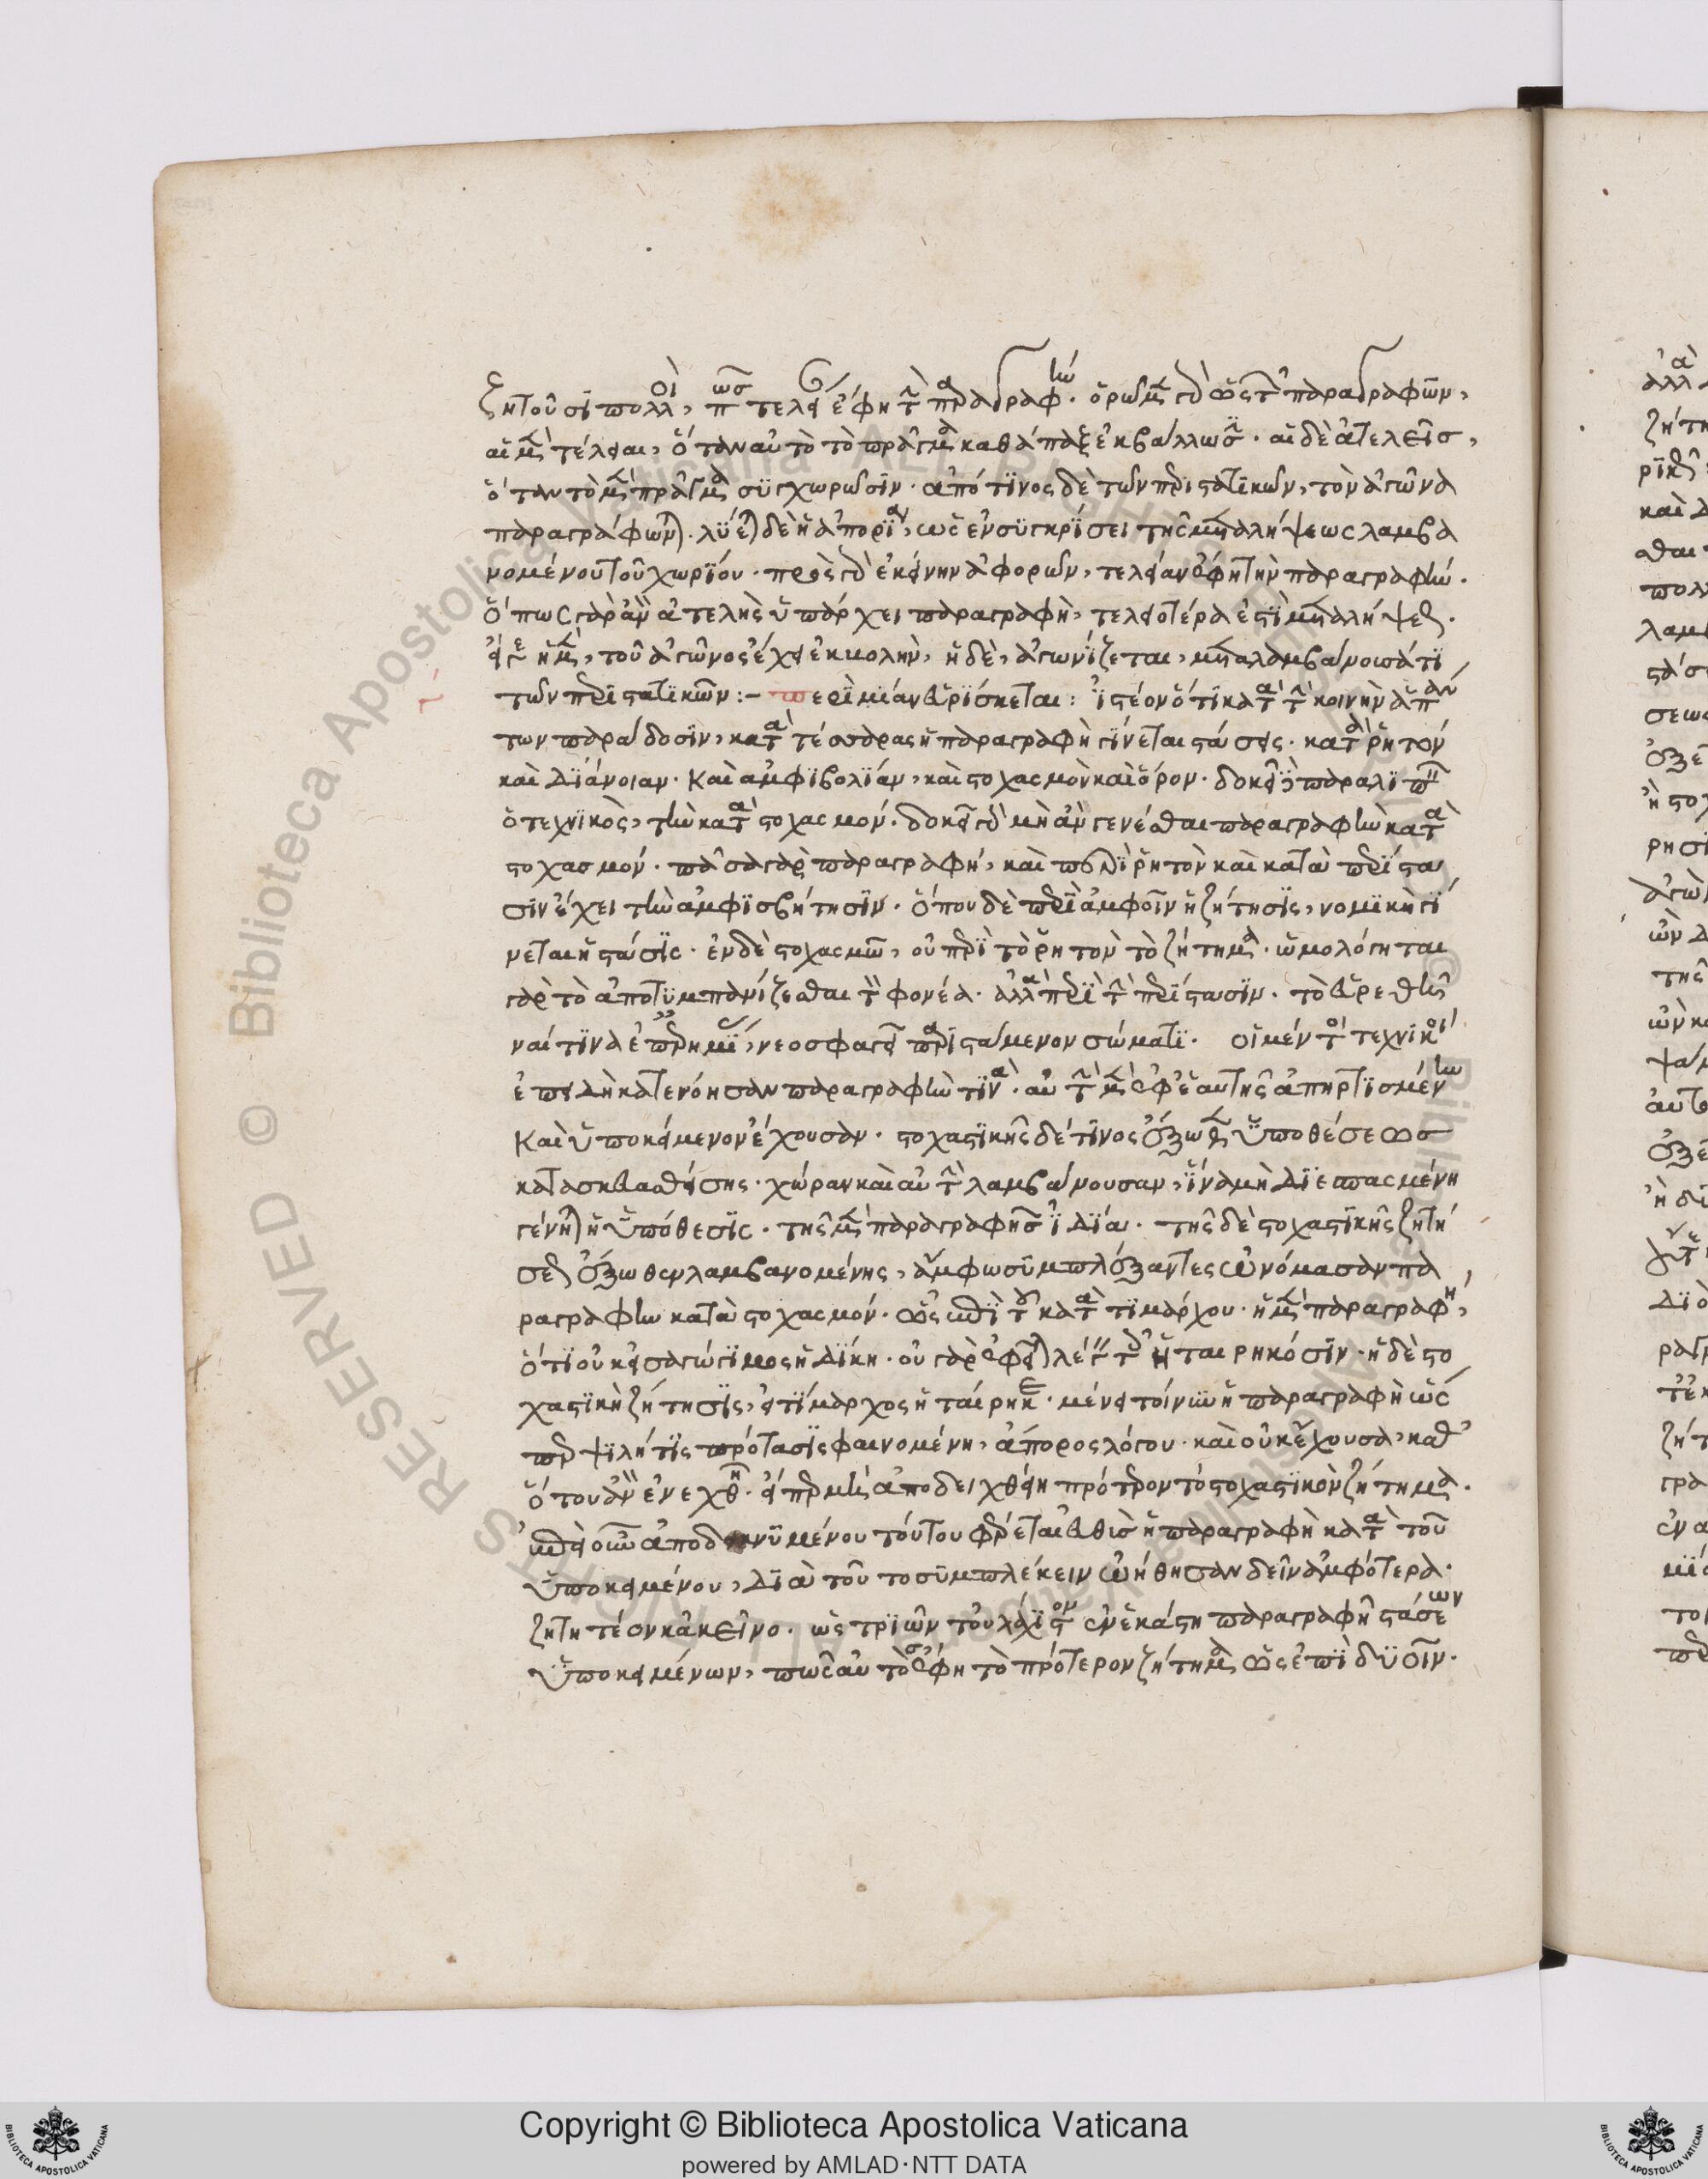 ζητοῦσι πολλοὶ, πῶς τελείαν ἔφη τὴν παραγραφήν. ὁρῶμεν γὰρ ὡς τῶν παραγραφῶν,
αἱ μὲν τέλειαι, ὅταν αὐτὸ τὸ πρᾶγμα καθάπαξ ἐκβάλλωσιν. αἱ δὲ ἀτελεῖς,
ὅταν τὸ μὲν πρᾶγμα συγχωρῶσιν. ἀπό τινος δὲ τῶν περιστατικῶν, τὸν ἀγῶνα
παραγράφωνται. λύεται δὲ ἡ ἀπορία, ὡς ἐν συγκρίσει τῆς μεταλήψεως λαμβα
νομένου τοῦ χωρίου. πρὸς γὰρ ἐκείνην ἀφορῶν, τελείαν ἔφη τὴν παραγραφήν.
ὅπως γὰρ ἂν ἀτελὴς ὑπάρχει παραγραφὴ, τελειοτέρα ἐστὶ μεταλήψεως.
εἴγε ἡ μὲν, τοῦ ἀγῶνος ἔχει ἐκβολὴν, ἡ δὲ, ἀγωνίζεται, μεταλαμβάνουσά τι
τῶν περιστατικῶν:– περὶ μίαν εὑρίσκεται: ἰστέον ὅτι κατὰ τὴν κοινὴν ἁπάν
των παράδοσιν, κατὰ τέσσαρας ἡ παραγραφὴ γίνεται στάσεις. κατὰ ῥητὸν
καὶ διάνοιαν. καὶ ἀμφιβολίαν, καὶ στοχασμὸν καὶ ὅρον. δοκεῖ δὲ παραλιπεῖν
ὁ τεχνικὸς, τὴν κατὰ στοχασμόν. δοκεῖ γὰρ μὴ ἂν γενέσθαι παραγραφὴν κατὰ
στοχασμόν. πᾶσα γὰρ παραγραφὴ, καὶ περὶ ῥητὸν καὶ κατὰ περίστα
σιν ἔχει τὴν ἀμφισβήτησιν. ὅπου δὲ περὶ ἀμφοῖν ἡ ζήτησις, νομικὴ γί
νεται ἡ στάσις. ἐν δὲ στοχασμῶ, οὐ περὶ τὸ ῥητὸν τὸ ζήτημα. ὡμολόγηται
γὰρ τὸ ἀποτυμπανίζεσθαι τὸν φονέα. ἀλλὰ περὶ τὴν περίστασιν. τὸ εὑρεθῆ
ναί τινα ἐπ' ἐρημία, νεοσφαγεῖ παριστάμενον σώματι. οἱ μέντοι τεχνικοὶ
ἐπειδὴ κατενόησαν παραγραφήν τινα. αὐτὴν μὲν ἐφ' ἑαυτῆς ἀπηρτισμένην
καὶ ὑποκείμενον ἔχουσαν. στοχαστικῆς δέ τινος ἔξωθεν ὑποθέσεως
κατασκευασθείσης. χώραν καὶ αὐτὴν λαμβάνουσαν, ἵνα μὴ διεσπασμένη
γένηται ἡ ὑπόθεσις. τῆς μὲν παραγραφῆς ἰδία. τῆς δὲ στοχαστικῆς ζητή
σεως ἔξωθεν λαμβανομένης, ἄμφω συμπλέξαντες ὠνόμασαν πα
ραγραφὴν κατὰ στοχασμόν. ὡς ἐπὶ τοῦ κατὰ τιμάρχου. ἡ μὲν παραγραφὴ,
ὅτι οὐκ εἰσαγώγιμος ἡ δίκη. οὐ γὰρ ἐφεῖται λέγειν τοῖς ἡταιρηκόσιν. ἡ δὲ στο
χαστικὴ ζήτησις, εἰ τίμαρχος ἡταίρηκε. μένει τοίνυν ἡ παραγραφὴ ὥσ
περ ψιλή τις πρότασις φαινομένη, ἄπορος λόγου. καὶ οὐκ ἔχουσα, καθ'
ὅτου ἂν ἐνεχθῆ. εἴπερ μὴ ἀποδειχθείη πρότερον τὸ στοχαστικὸν ζήτημα.
ἐπεὶ οὖν ἀποδεικνυμένου τούτου φέρεται εὐθὺς ἡ παραγραφὴ κατὰ τοῦ
ὑποκειμένου, διὰ τοῦτο συμπλέκειν ᾠήθησαν δεῖν ἀμφότερα.
ζητητέον κἀκεῖνο. ὡς τριῶν τοὐλάχιστον ἐν ἑκάστη παραγραφῆ στάσεων
ὑποκειμένων, πῶς αὐτὸς ἔφη τὸ πρότερον ζήτημα ὡς ἐπὶ δυοῖν.